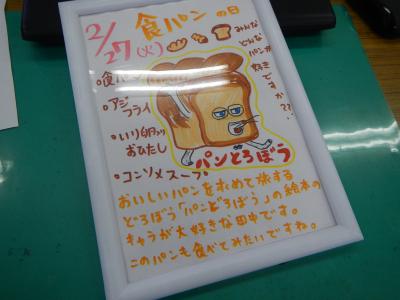 2/27(火)
食パンの日
みんな
どんな
パンが
好き
ですか??
•食パン
•アジ
フライ
•いり卵の
おひたし
•コンソメスープ
パンどろぼう
おいしいパンを求めて旅する
どろぼう「パンどろぼう」の絵本の
キャラが大好きな田中です。
このパンも食べてみたいですね。